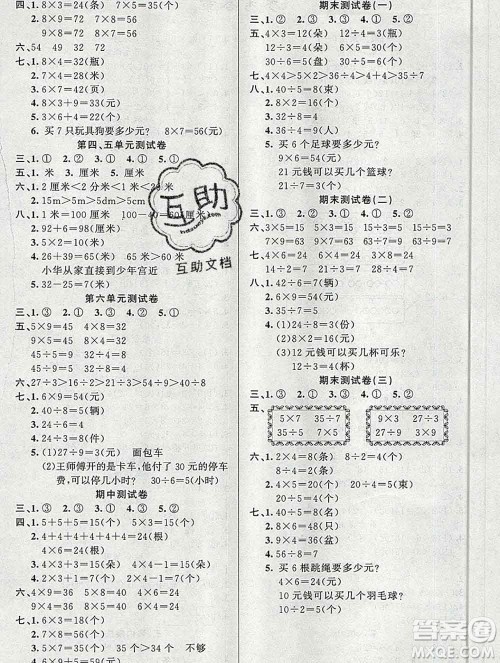 四、1. 8×3=24(个)
2. 5×3=15(个)
3. 9×8=72(个)
8×7=56(个) 7×8=56(个)
六、54 49 32
七、1. 8×4=32(瓶)
2. 7×4=28(米)
3. 9×2=18(米)
4. 8×3+9=33(点)
5. 8×4=32(元)
6. 买 7 只玩具狗要多少元? 8×7=56(元)
第四、五单元测试卷
三、1. ① 2. ③ 3. ② 4. ③ 5. ①
五、米 米
六、1. 2 厘米<12 厘米
2. 15m>5m>5dm>5cm
八、1. 1 米=100 厘米
2. 92+6=98(元)
3. 45×2=90(厘米)
4. 26+39=65(米)
小华从家直接到少年宫近
第六单元测试卷
三、1. ③ 2. ① 3. ② 4. ② 5. ①
五、5×9=45 4×8=32
9×5=45 8×4=32
45÷9=5 32÷8=4
45÷5=9 32÷4=8
六、27÷3>18>16>12÷3
七、1. 6×9=54(元)
2. 10×4=40(辆)
3. 54÷9=6(元)
4. 40÷8=5(个)
5. (1)27÷9=3(元) 面包车
(2)王师傅开的是卡车,他付了 30 元的停车
费,可停几小时? 30÷6=5(小时)
期中测试卷
三、1. ③ 2. ② 3. ① 4. ③ 5. ①
四、1. 5+5+5=15(个) 5×3=15(个)
2. 4+4+4+4+4+4=24(根)
4×6=24(根)
3. 4×4-1=15(朵) 3×4+3=15(朵)
4. 2×4-1=7(个) 2×3+1=7(个)
六、4×9=36 8×5=40 9×4=36
9×3=27 5×9=45
七、1. 6×3=18(元)
2. 4×8=32(朵)
3. 7×5=35(个) 35>31 不够
4. 9×8=72(个)
期末测试卷(一)
三、1. ① 2. ③ 3. ① 4. ② 5. ②
五、4×3=12(朵) 12÷3=4(瓶)
30÷6=5(盘) 30÷5=6(个)
六、4×2
八、1. 40÷5=8(束)
2. 8×4=32(元)
3. 8×5=40(个)
4. 30÷5=6(个)
5. 9÷3=3(元)
21 元钱可以买几个篮球?
21÷3=7(个)
期末测试卷(二)
三、1. ② 2. ③ 3. ② 4. ③ 5. ①
六、3×5=15 5×3=15 5×7=35
7×5=35 6×4=24 4×6=24
八、1. 8×6=48(辆)
2. 32÷8=4(元)
3. 35÷7=5
4. (1)24÷8=3(份)
(2)8×3=24(个)
5. 12 元钱可以买几杯可乐?
12÷3=4(杯)
期末测试卷(三)
三、1. ③ 2. ③ 3. ① 4. ① 5. ②
五、5×7 35÷7 9×3 27÷3
35÷5 7×5 27÷9 3×9
七、1. 48÷6=8(个)
2. 8×6=48(个)
3. 10×9=90(朵)
4. 9×4=36(盆)
5. 56÷8=7
6. 买 6 根跳绳要多少元?
4×6=24(元)
10 元钱可以买几个羽毛球?
10÷2=5(个)
互助
互助文档
答案圈
MXQE.COM